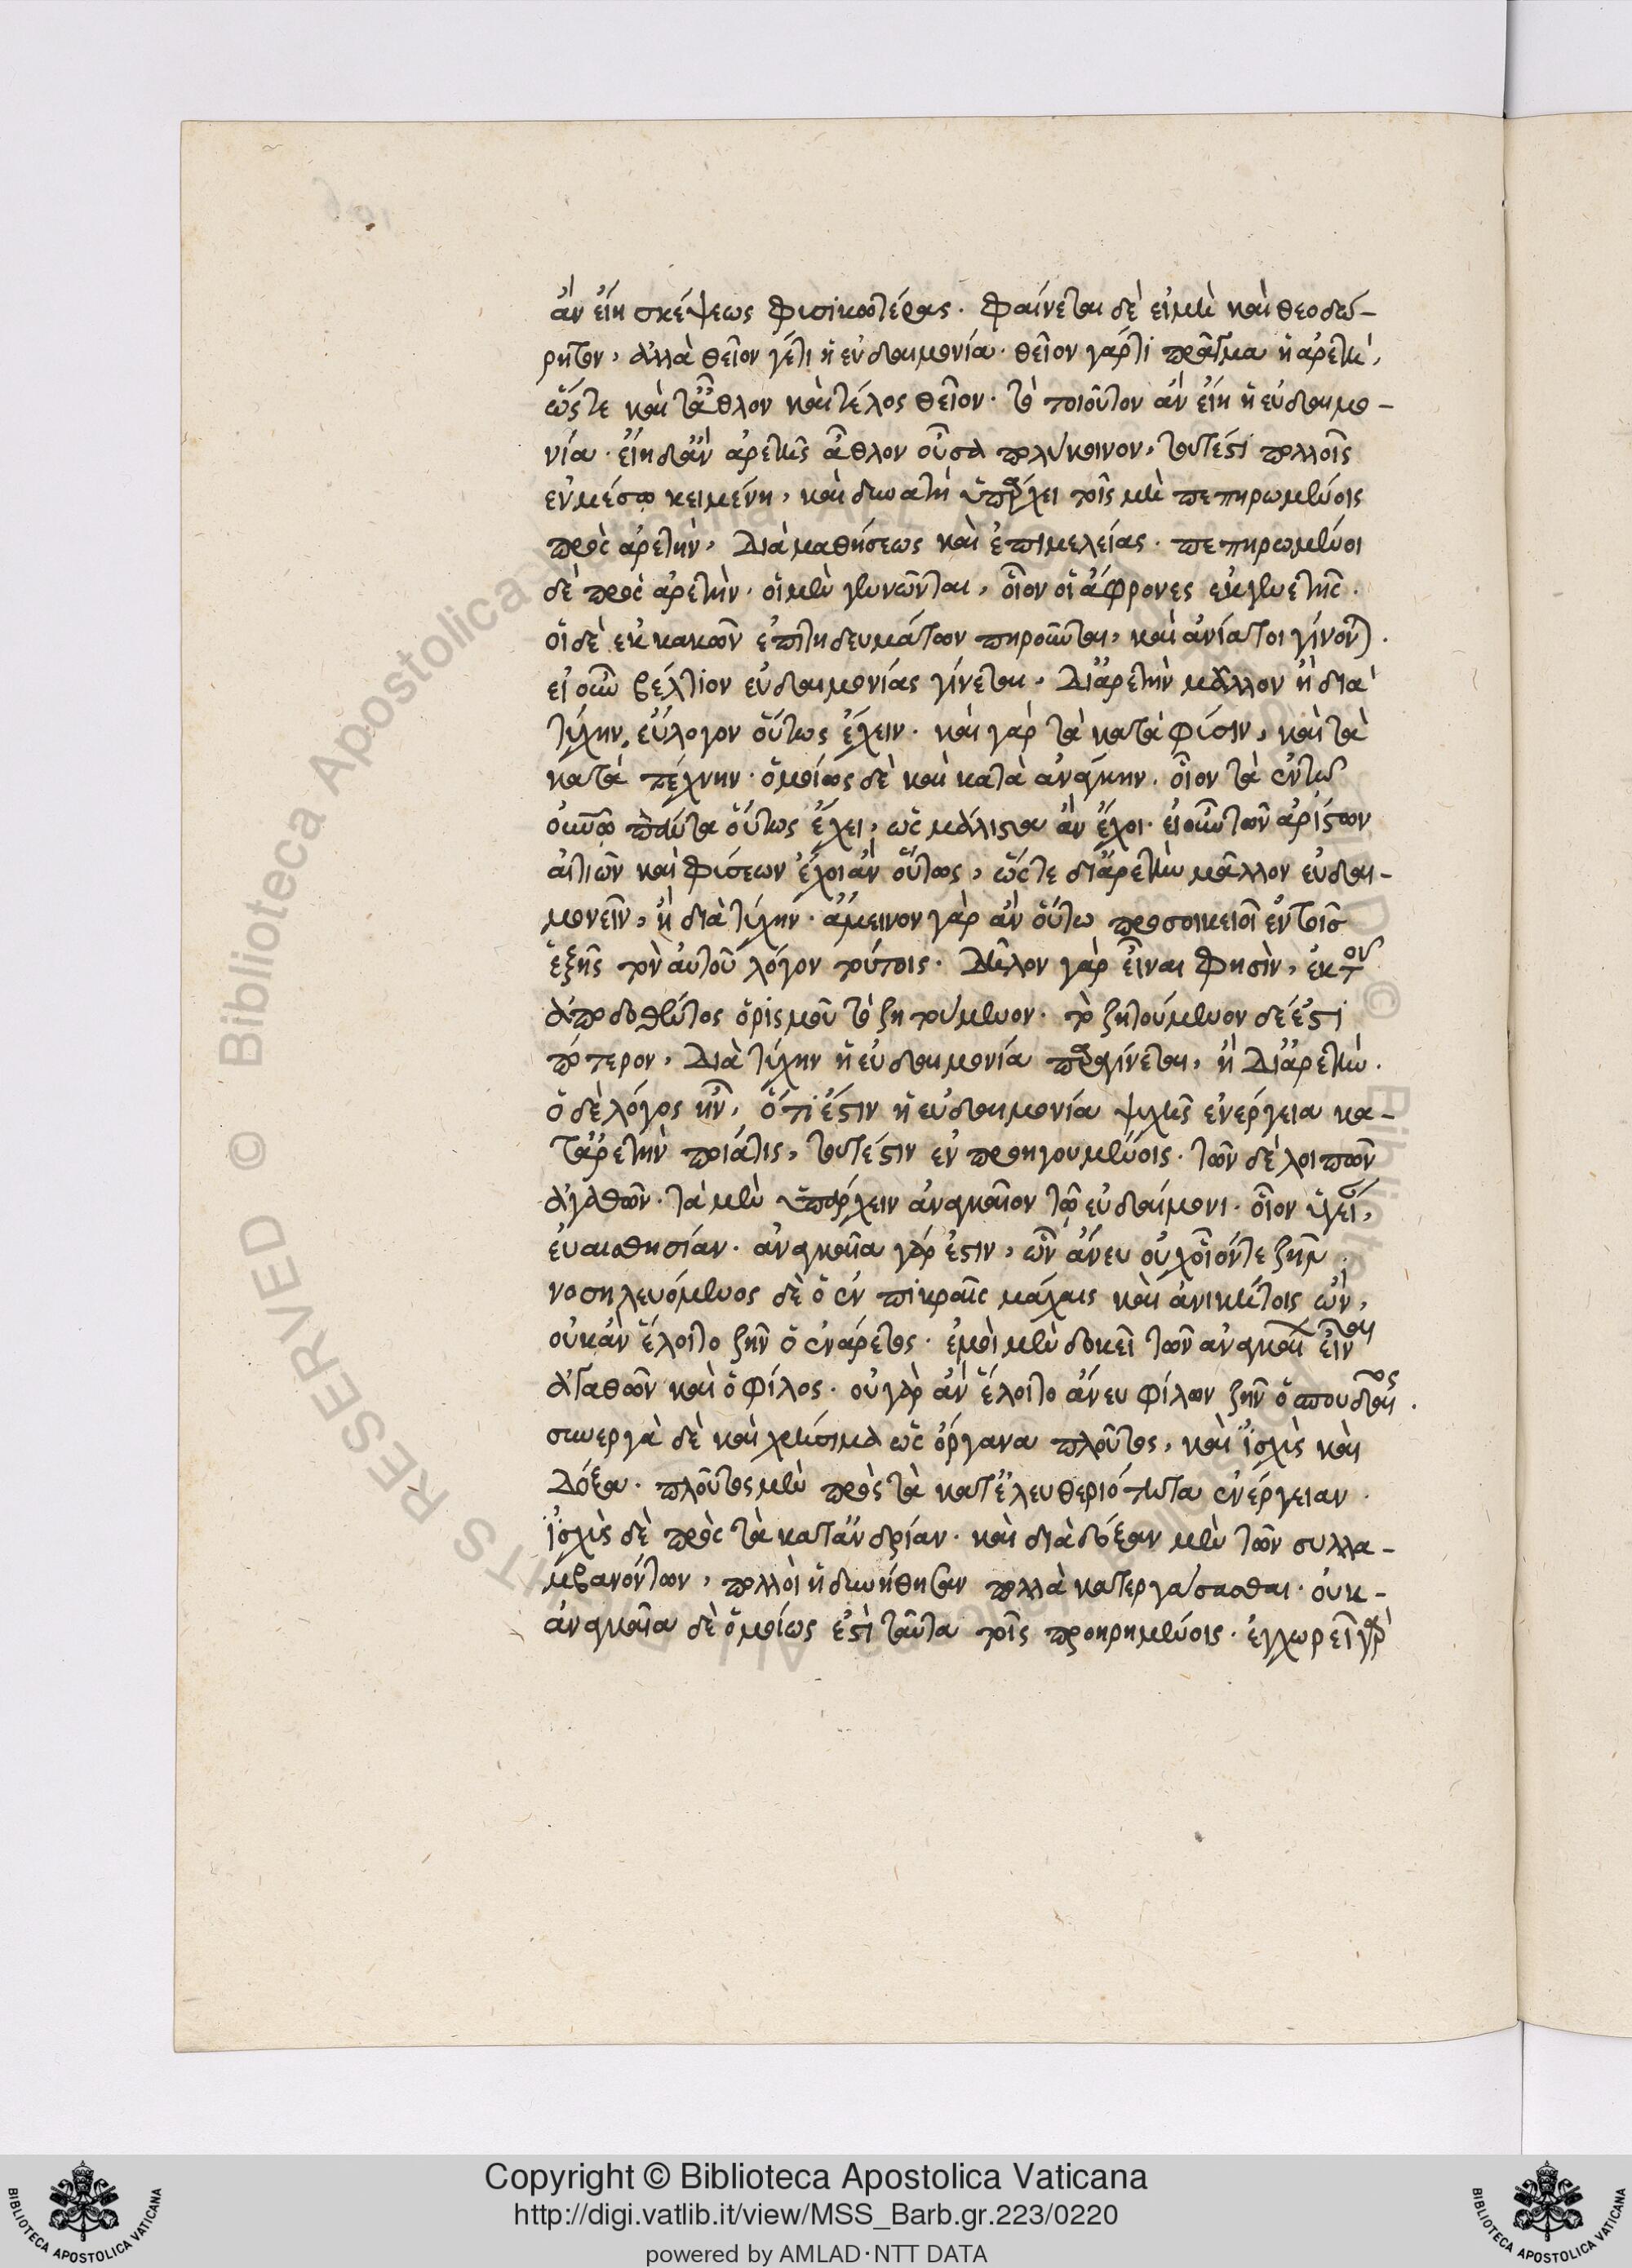 ἂν εἴη σκέψεως φυσικωτέρας. φαίνεται δὲ εἰ μὴ καὶ θεοδώ-
ρητον, ἀλλὰ θεῖον γέ τι ἡ εὐδαιμονία. θεῖον γάρ τι πρᾶγμα ἡ ἀρετὴ,
ὥστε καὶ τὸ ἆθλον καὶ τέλος θεῖον. τὸ τοιοῦτον ἂν εἴη ἡ εὐδαιμο-
νία. εἴη δ' ἂν ἀρετῆς ἆθλον οὖσα πολύκοινον, τουτέστι πολλοῖς
ἐν μέσῳ κειμένη, καὶ δυνατὴ ὑπάρχει τοῖς μὴ πεπηρωμένοις
πρὸς ἀρετὴν, διὰ μαθήσεως καὶ ἐπιμελείας. πεπηρωμένοι
δὲ πρὸς ἀρετὴν. οἱ μὲν γεννῶνται, οἷον οἱ ἄφρονες ἐκ γενετῆς.
οἱ δὲ ἐκ κακῶν ἐπιτηδευμάτων πηροῦνται, καὶ ἀνίατοι γίνονται.
εἰ οὖν βέλτιον εὐδαιμονίας γίνεται, δι' ἀρετὴν μᾶλλον ἢ διὰ
τύχην, εὔλογον οὕτως ἔχειν. καὶ γὰρ τὰ κατὰ φύσιν, καὶ τὰ
κατὰ τέχνην. ὁμοίως δὲ καὶ κατὰ ἀνάγκην. οἷον τὰ ἐν τῷ
οὐνῷ πάντα οὕτως ἔχει, ὡς μάλιστα ἂν ἔχοι. εἰ οὖν τῶν ἀρίστων
αἰτιῶν καὶ φύσεων ἔχοι ἂν οὕτως, ὥστε δι' ἀρετὴν μᾶλλον εὐδαι-
μονεῖν, ἢ διὰ τύχην. ἄμεινον γὰρ ἂν οὕτω προσοικειοῖ ἐν τοῖς
ἑξῆς τὸν αὐτοῦ λόγον τούτοις. δῆλον γὰρ εἶναι φησὶν, ἐκ τοῦ
ἀποδοθέντος ὁρισμοῦ τὸ ζητούμενον. τὸ ζητούμενον δέ ἐστι
πότερον, διὰ τύχην ἡ εὐδαιμονία παραγίνεται, ἢ δι' ἀρετήν.
ὁ δὲ λόγος ἦν, ὅτι ἐστὶν ἡ εὐδαιμονία ψυχῆς ἐνέργεια κα-
τ' ἀρετὴν ποιά τις, τουτέστιν ἐν προηγουμένοις. τῶν δὲ λοιπῶν
ἀγαθῶν. τὰ μὲν ὑπάρχειν ἀναγκαῖον τῷ εὐδαίμονι. οἷον ὑγεί,
εὐαισθησίαν. ἀναγκαῖα γάρ ἐστιν, ὧν ἄνευ οὐχ οἷόν τε ζῆν.
νοσηλευόμενος δὲ ὁ ἐν πικραῖς μάχαις καὶ ἀνικήτοις ὢν,
οὐκ ἂν ἕλοιτο ζῆν ὁ ἐνάρετος. ἐμοὶ μὲν δοκεῖ τῶν ἀναγκαί εἶναι
ἀγαθῶν καὶ ὁ φίλος. οὐ γὰρ ἂν ἕλοιτο ἄνευ φίλων ζῆν ὁ σπουδαῖος.
συνεργὰ δὲ καὶ χρήσιμα ὡς ὄργανα πλοῦτος, καὶ ἰσχὺς καὶ
δόξα. πλοῦτος μὲν πρὸς τὰ κατ' ἐλευθεριότητα ἐνέργειαν.
ἰσχὺς δὲ πρὸς τὰ κατ' ἀνδρίαν. καὶ διὰ δόξαν μὲν τῶν συλλα-
μβανόντων, πολλοὶ ἠδυνήθησαν πολλὰ κατεργάσασθαι. οὐκ-
ἀναγκαῖα δὲ ὁμοίως ἐστὶ ταῦτα τοῖς προηρημένοις. ἐγχωρεῖ γὰρ
Copyright © Biblioteca Apostolica Vaticana
http://digi.vatlib.it/view/MSS_Barb.gr.223/0220
powered by AMLAD·NTT DATA